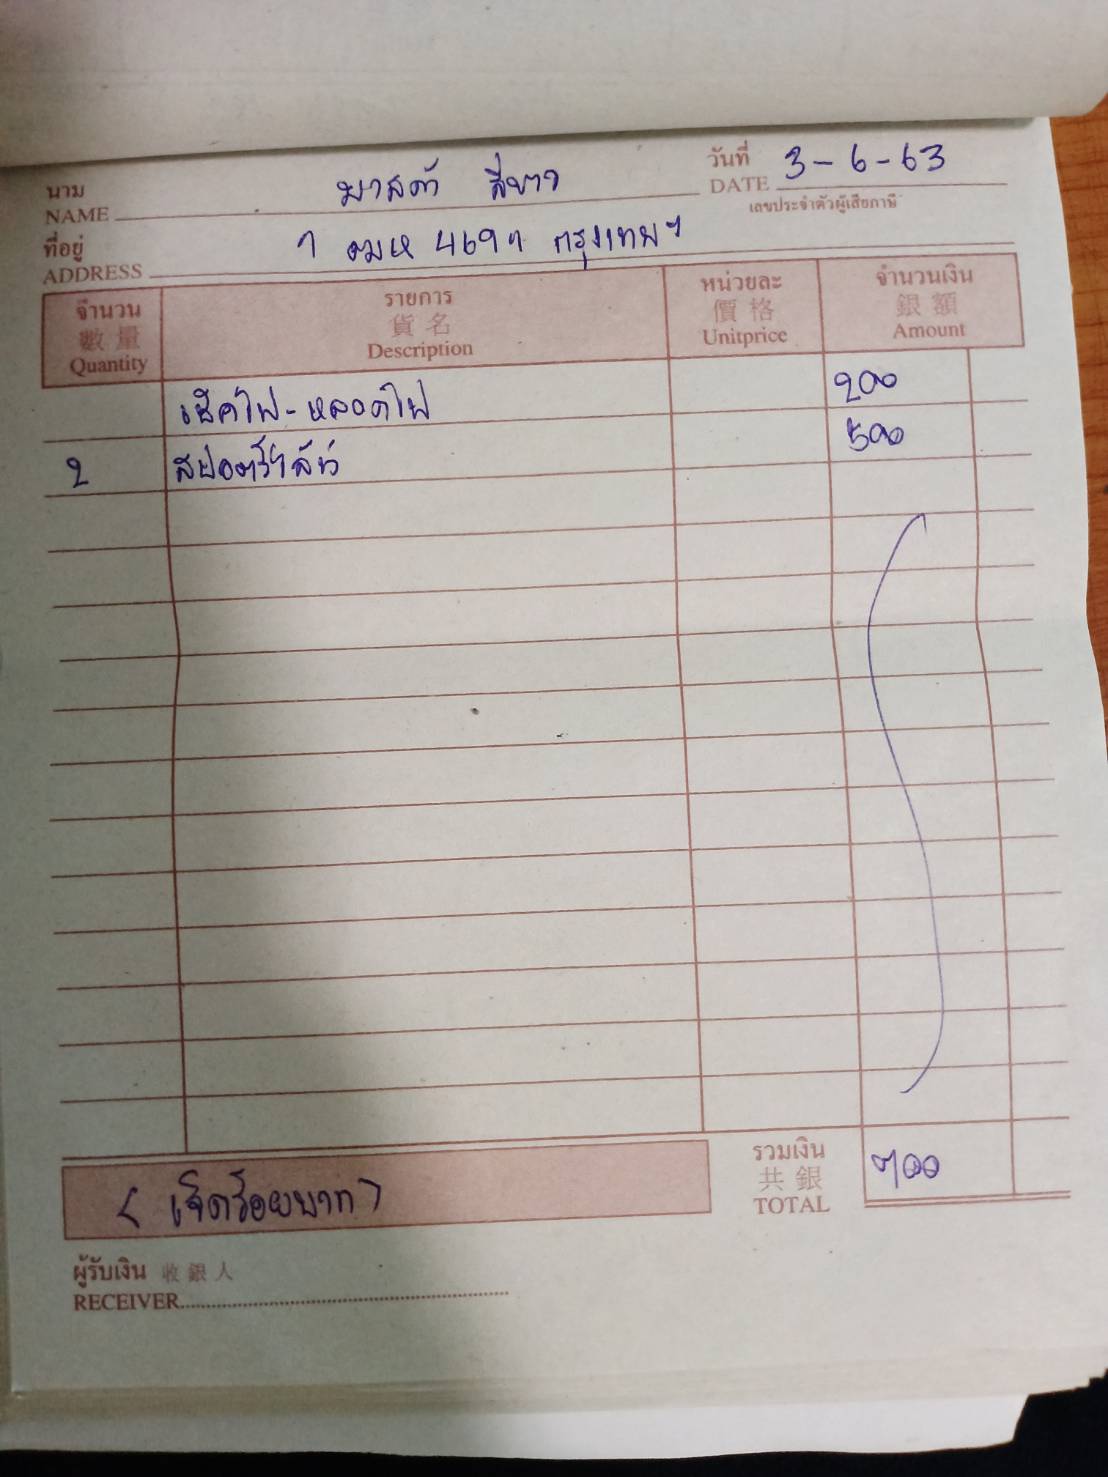 นาม
NAME มาสด้า สีขาว
วันที่
DATE 3-6-63
เลขประจำตัวผู้เสียภาษี
ที่อยู่
ADDRESS 1 ฒห 4691 กรุงเทพฯ
จำนวน รายการ หน่วยละ จำนวนเงิน
數量 貨名 價格 銀額
Quantity Description Unitprice Amount
เช็คไฟ-หลอดไฟ 200
2 สปอตไร์ไลน์ 500
รวมเงิน
共銀
TOTAL 700
(เจ็ดร้อยบาท)
ผู้รับเงิน 收銀人
RECEIVER